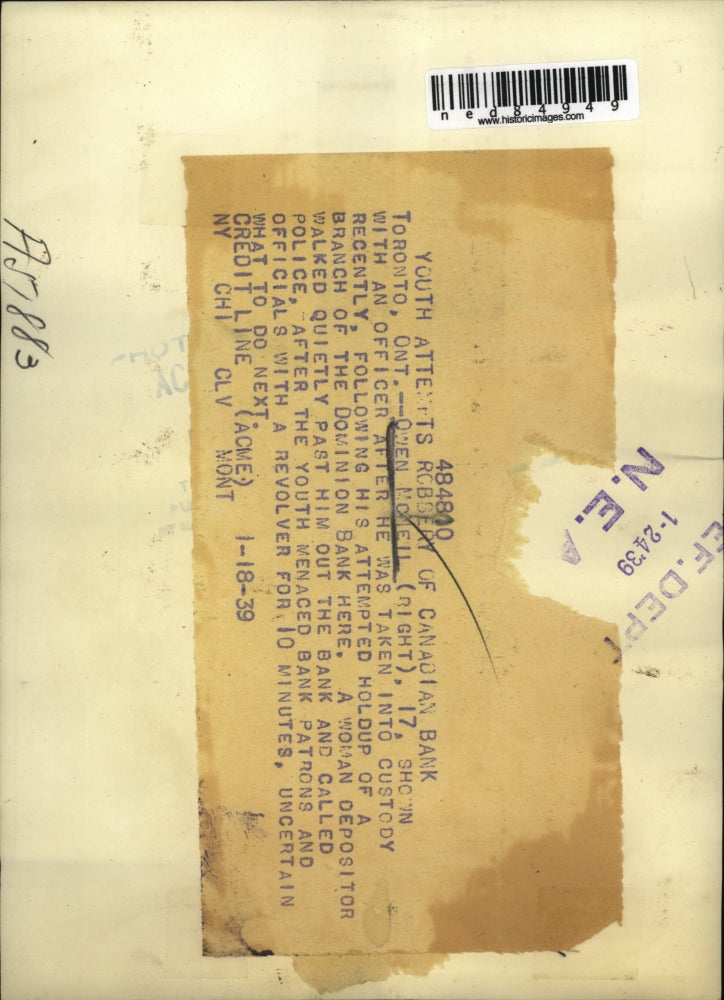 ned84949
www.historicimages.com
484810
YOUTH ATTEMPTS ROBBERY OF CANADIAN BANK
TORONTO, ONT.--OWEN MCNEIL (RIGHT), 17, SHOWN
WITH AN OFFICER AFTER HE WAS TAKEN INTO CUSTODY
RECENTLY, FOLLOWING HIS ATTEMPTED HOLDUP OF A
BRANCH OF THE DOMINION BANK HERE. A WOMAN DEPOSITOR
WALKED QUIETLY PAST HIM OUT THE BANK AND CALLED
POLICE, AFTER THE YOUTH MENACED BANK PATRONS AND
OFFICIALS WITH A REVOLVER FOR 10 MINUTES, UNCERTAIN
WHAT TO DO NEXT.
CREDIT LINE (ACME) 1-18-39
NY CHI CLV MONT
EF. DEPT
1-24'39
N.E.A